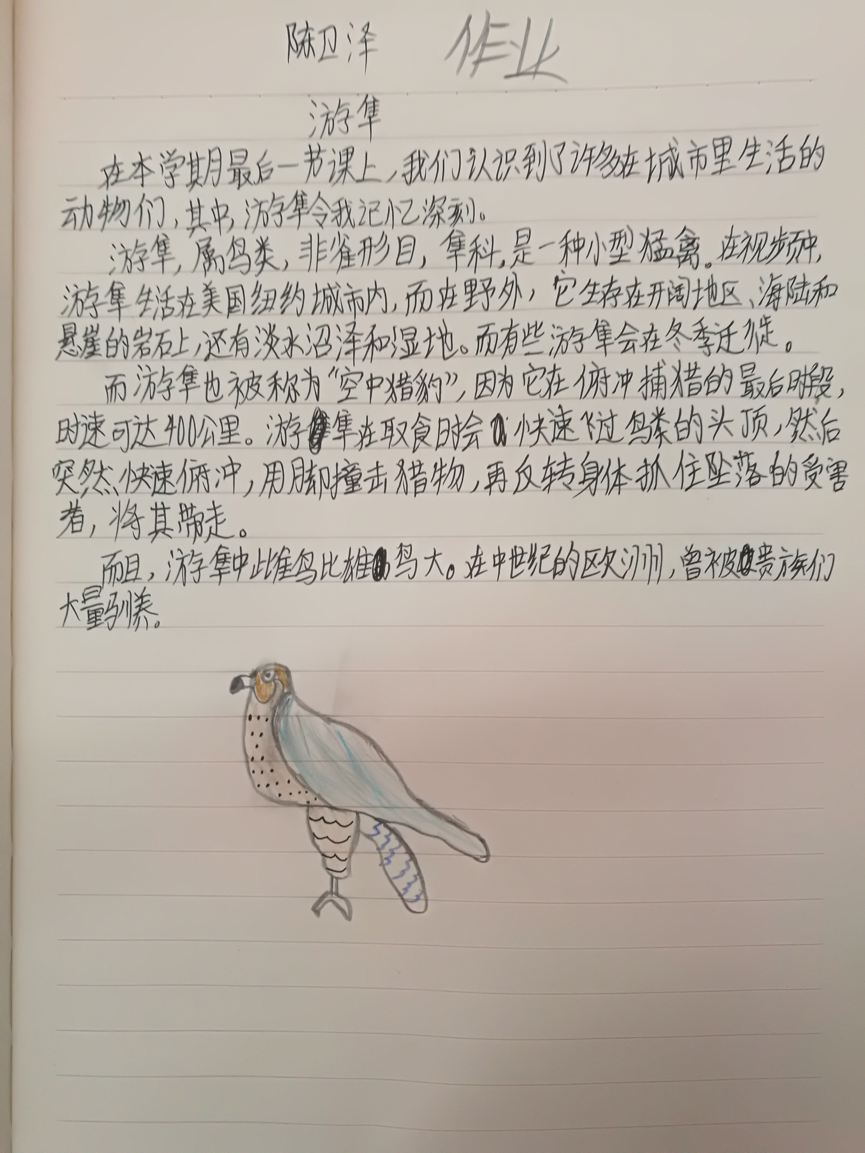 陈卫泽 作业
游隼
在本学期最后一节课上,我们认识到了许多在城市里生活的
动物们,其中,游隼令我记忆深刻。
游隼,属鸟类,非雀形目,隼科,是一种小型猛禽。在视频中,
游隼生活在美国纽约城市内,而在野外,它生存在开阔地区、海陆和
悬崖的岩石上,还有淡水沼泽和湿地。而有些游隼会在冬季迁徙。
而游隼也被称为“空中猎豹”,因为它在俯冲捕猎的最后时段,
时速可达400公里。游隼在取食时会快速飞过鸟类的头顶,然后
突然快速俯冲,用脚撞击猎物,再反转身体抓住坠落的受害
者,将其带走。
而且,游隼中雌鸟比雄鸟大。在中世纪的欧洲,曾被贵族们
大量驯养。